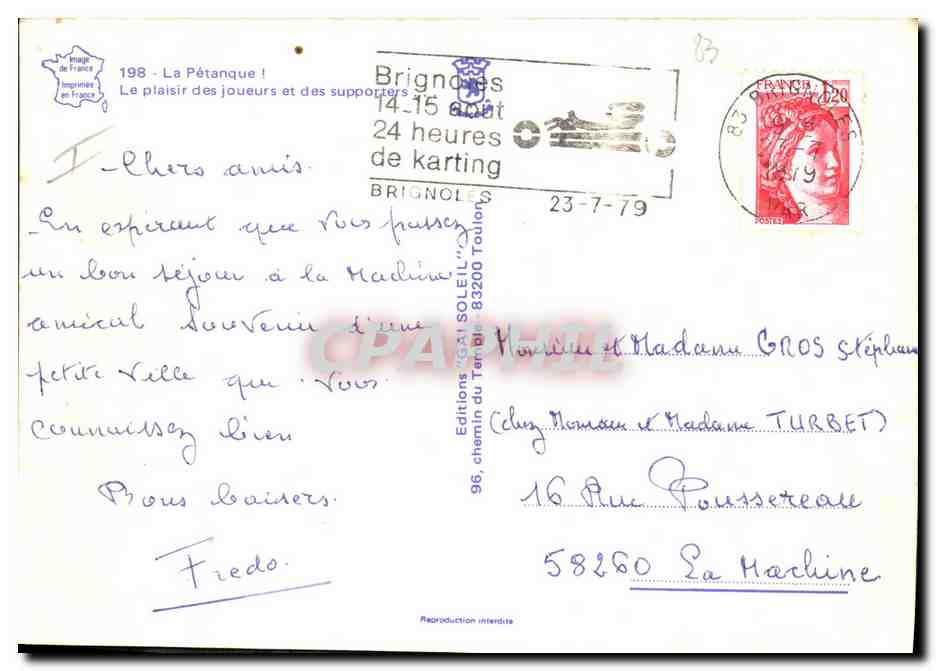 Image
de France
Imprimée
en France
198 - La Pétanque !
Le plaisir des joueurs et des supporters
83
Brignoles
14-15 août
24 heures
de karting
BRIGNOLES 23-7-79
FRANCE 1,20
POSTES
83 BRIGNOLES
VAR
I
Chers amis.
En espérant que vous passez
un bon séjour à la Machine
amical souvenir d'une
petite ville que vous
connaissez bien
Bons baisers.
Fredo.
Editions "GAI SOLEIL",
96, chemin du Temple - 83200 Toulon
CPAPHIL
Monsieur et Madame GROS Stéphane
(chez Monsieur et Madame TURBET)
16 Rue Poussereau
58260 La Machine
Reproduction interdite